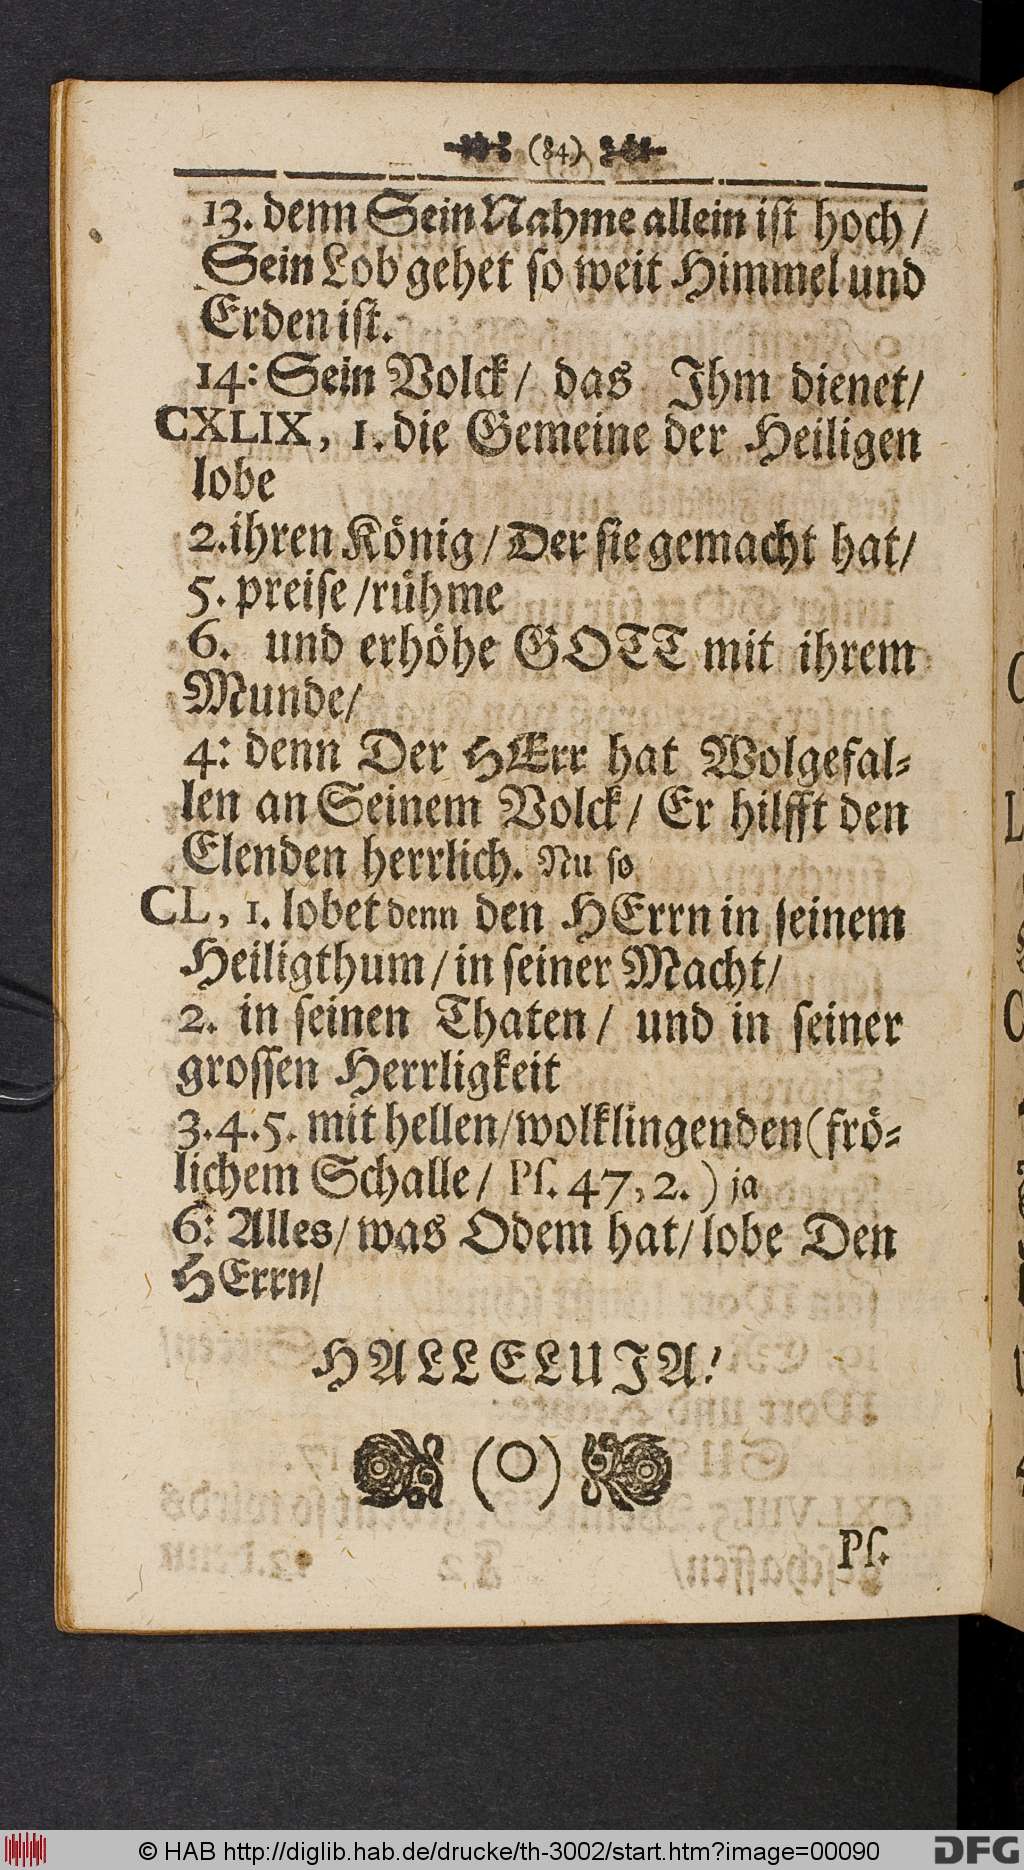 (84)
13. denn Sein Nahme allein ist hoch /
Sein Lob gehet so weit Himmel und
Erden ist.
14: Sein Volck / das Ihm dienet /
CXLIX, 1. die Gemeine der Heiligen
lobe
2. ihren König / Der sie gemacht hat /
5. preise / rühme
6. und erhöhe GOTT mit ihrem
Munde /
4: denn Der HErr hat Wolgefal-
len an Seinem Volck / Er hilfft den
Elenden herrlich. Nu so
CL, 1. lobet denn den HErrn in seinem
Heiligthum / in seiner Macht /
2. in seinen Thaten / und in seiner
grossen Herrligkeit
3.4.5. mit hellen / wolklingenden (frö-
lichem Schalle / Ps. 47, 2.) ja
6: Alles / was Odem hat / lobe Den
HErrn /
HALLELUJA!
(O)
Ps.
© HAB http://diglib.hab.de/drucke/th-3002/start.htm?image=00090
DFG